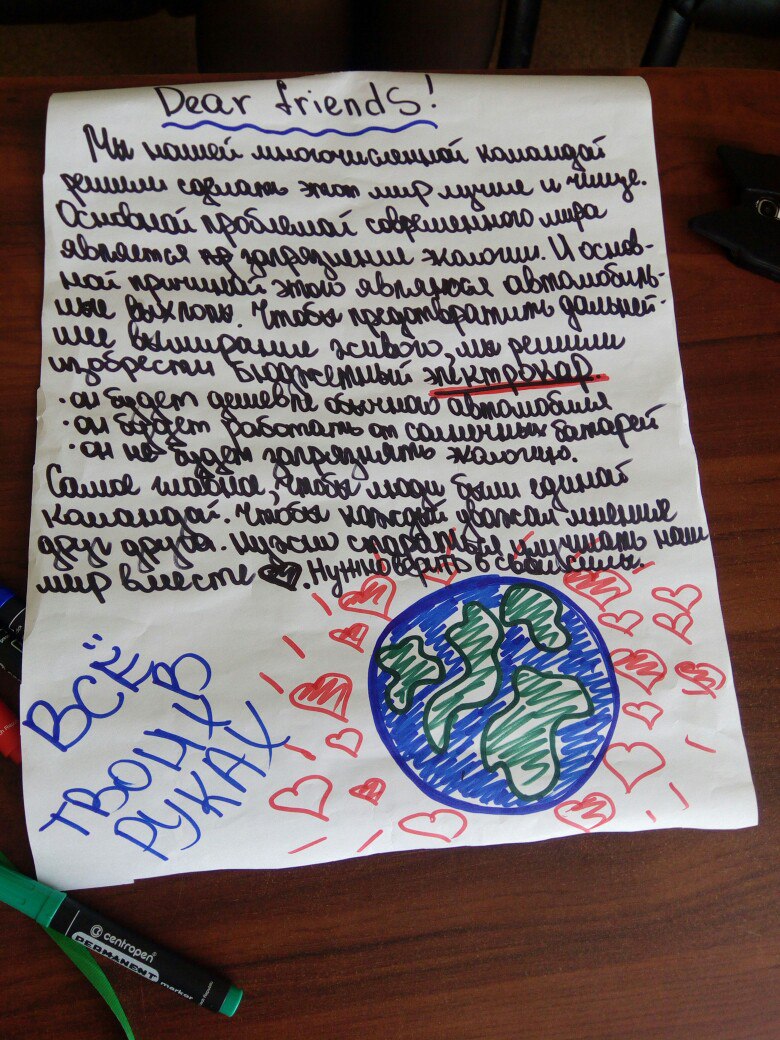 Dear friends!
Мы нашей многочисленной командой
решили сделать этот мир лучше и чище.
Основной проблемой современного мира
является загрязнение экологии. И основ-
ной причиной этого являются автомобиль-
ные выхлопы. Чтобы предотвратить дальней-
шее вымирание живого, мы решили
изобрести бюджетный электрокар.
· он будет дешевле обычного автомобиля
· он будет работать от солнечных батарей
· он не будет загрязнять экологию.
Самое главное, чтобы люди были единой
командой. Чтобы каждый уважал мнение
друг друга. Нужно стараться улучшить наш
мир вместе. Нужно верить в свои силы.
ВСЁ В
ТВОИХ
РУКАХ
centropen
PERMANENT
marker